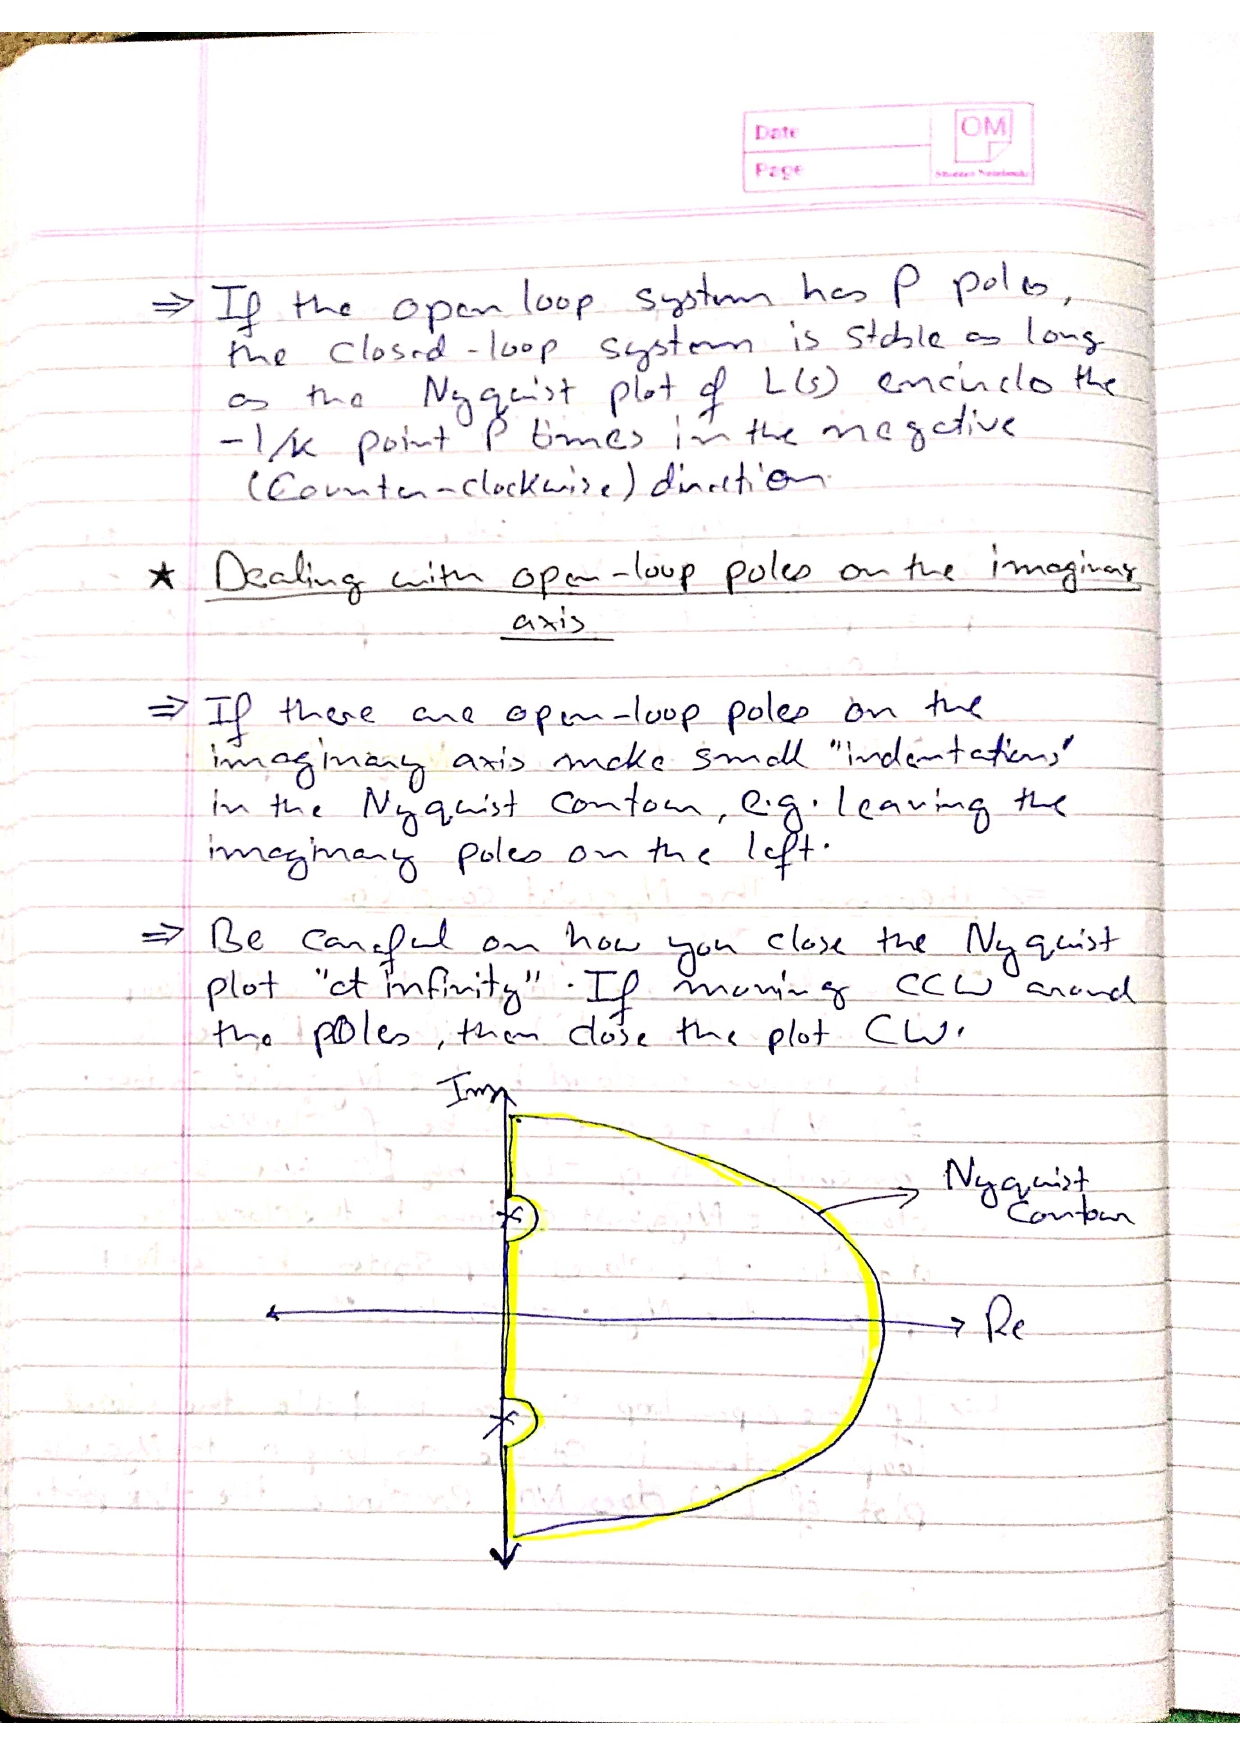 Date
Page
OM
⇒ If the open loop system has P poles,
the closed-loop system is stable as long
as the Nyquist plot of L(s) encircles the
-1/k point P times in the negative
(Counter-clockwise) direction.
★ Dealing with open-loop poles on the imaginary
axis
⇒ If there are open-loop poles on the
imaginary axis make small "indentations"
in the Nyquist Contour, e.g. leaving the
imaginary poles on the left.
⇒ Be careful on how you close the Nyquist
plot "at infinity". If moving CCW around
the poles, then close the plot CW.
Img
Nyquist
Contour
Re